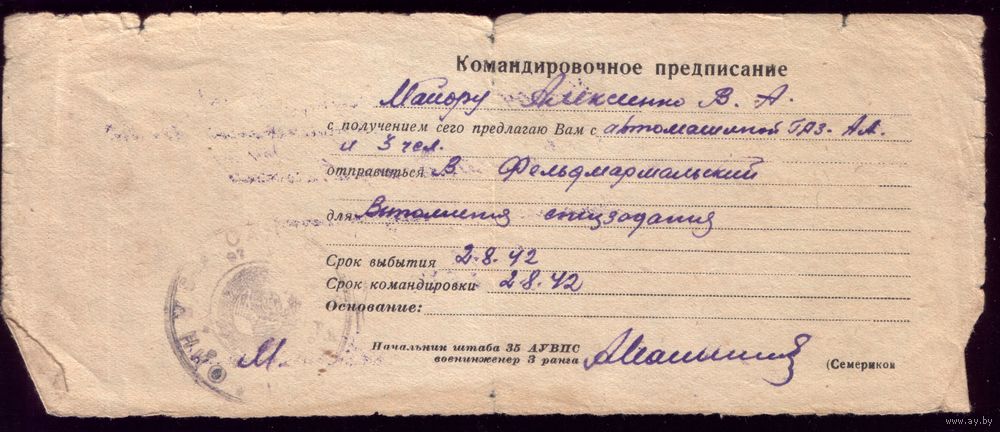 Командировочное предписание
Майору Алексиенко В. А.
с получением сего предлагаю Вам с автомашиной ГАЗ-АА.
и 3 чел.
отправиться В Фельдмаршальский
для Выполнения спецзадания
Срок выбытия 2.8.42
Срок командировки 2.8.42
Основание:
Начальник штаба 35 АУВПС
военинженер 3 ранга
(Семериков
М.
www.ay.by